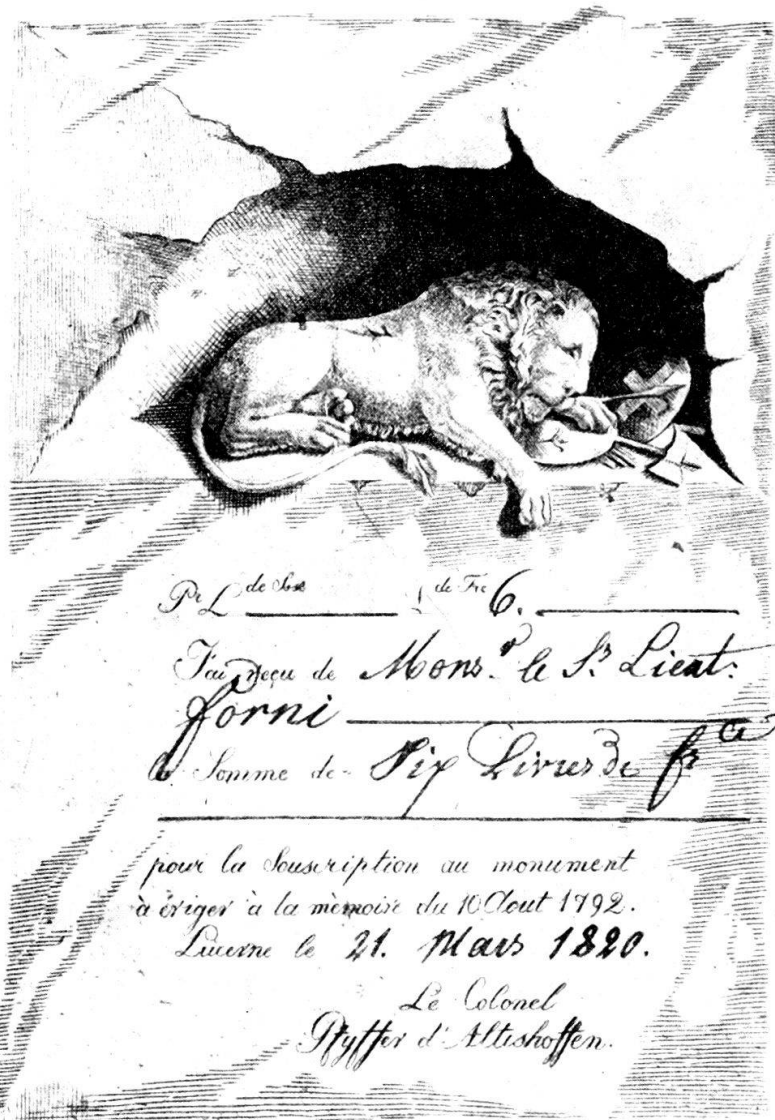 Pr L de Sses L de Frce 6.
J'ai reçu de Mons.r le S.s Lieut:
forni
la Somme de Six Livres de frce
pour la Souscription au monument
à èriger à la mèmoire du 10 Aout 1792.
Lucerne le 21. Mars 1820.
Le Colonel
Pfyffer d'Altishoffen.